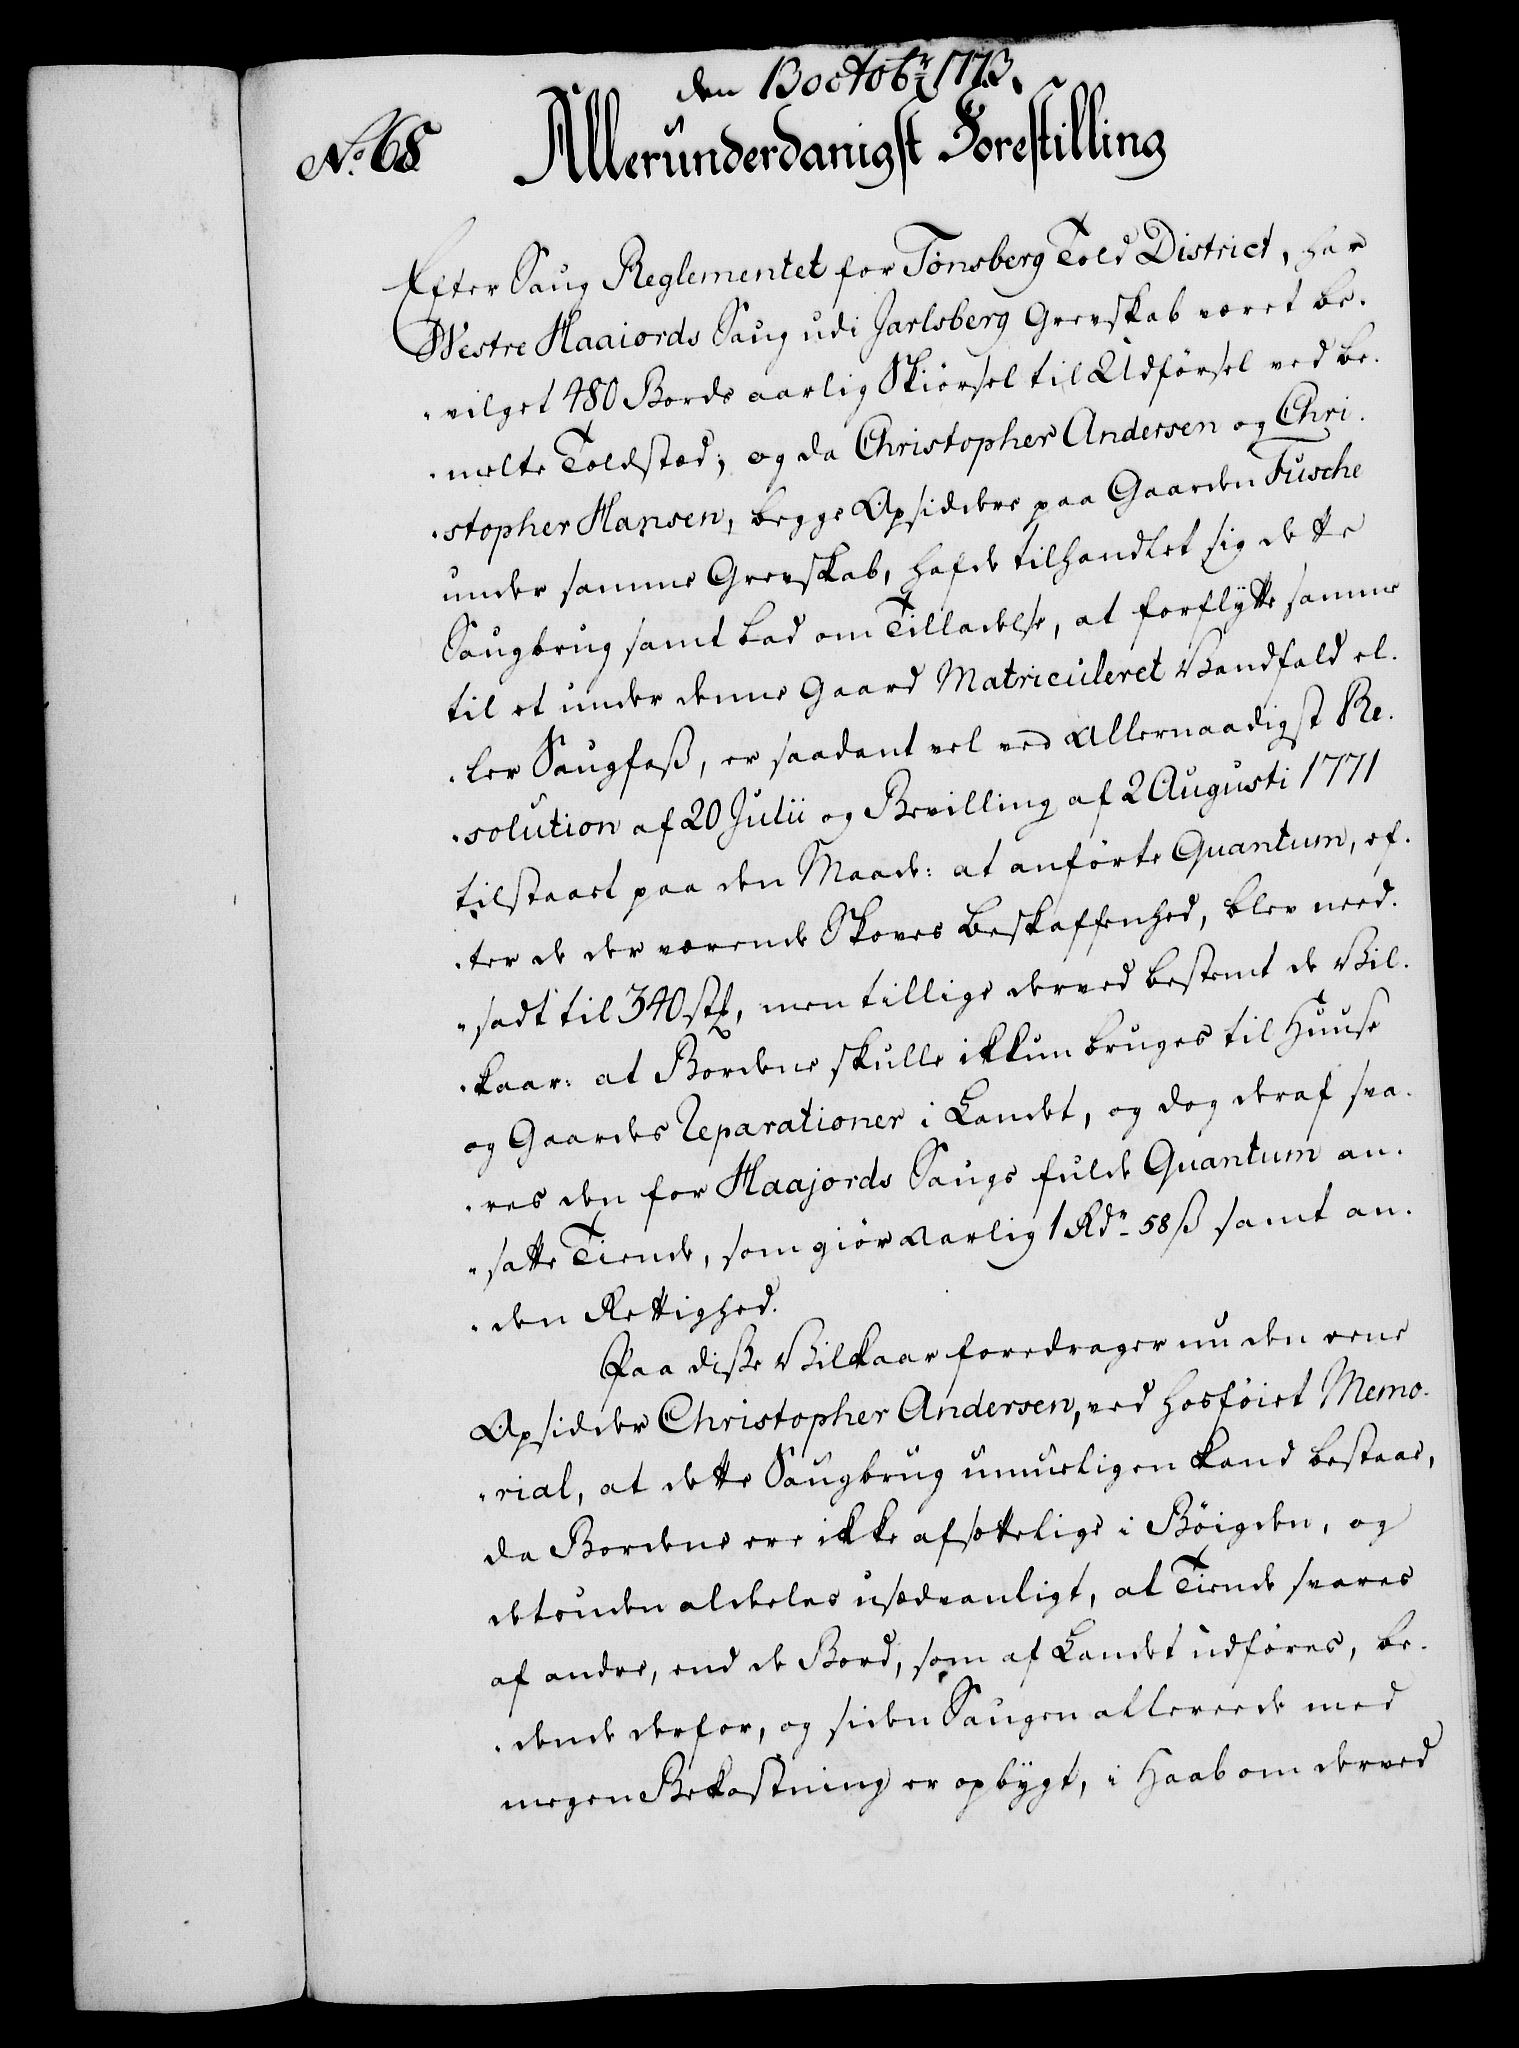 den 13 octobr 1773.
No 68 Allerunderdanigst Forestilling
Efter Saug Reglementet for Tönsberg Told District, har
Westre Haaiords Saug udi Jarlsberg Grevskab været be-
-vilget 480 Bords aarlig Skiörsel til Udförsel ved be-
-melte Toldstæd; og da Christopher Andersen og Chri-
-stopher Hansen, begge Opsiddere paa Gaarden Fusche
under samme Grevskab, hafde tilhandlet sig dette
Saugbrug samt bad om Tilladelse, at forflytte samme
til et under denne Gaard Matriculeret Vandfald el-
-ler Saugfoss, er saadant vel ved Allernaadigst Re-
-solution af 20 Julii og Bevilling af 2 Augusti 1771
tilstaaet paa den Maade: at anförte Quantum, ef-
-ter de der værende Skoves Beskaffenhed, blev need-
-sadt til 340 stk, men tillige derved bestemt de Vil-
-kaar: at Bordene skulle ikkun bruges til Huuse
og Gaardes Reparationer i Landet, og dog deraf sva-
-res den for Haajords Saugs fulde Quantum an-
-satte Tiende, som giör aarlig 1 Rdr 58 ß samt an-
-den Rettighed.
Paa disse Vilkaar foredrager nu den eene
Opsidder Christopher Andersen, ved hosföiet Memo-
-rial, at dette Saugbrug umueligen kand bestaae,
da Bordene ere ikke afsættelige i Böigden, og
desuden aldeeles usædvanligt, at Tiende svares
af andre, end de Bord, som af Landet udföres, be-
-dende derfor, og siden Saugen allereede med
megen Bekostning er opbygt, i Haab om derved